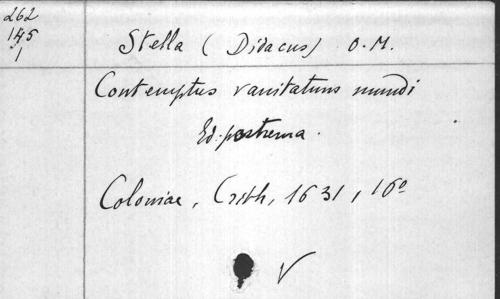 262
145
1
Stella (Didacus) O.M.
Contemptus vanitatum mundi
Ed. postrema.
Coloniae, 1631, 16º
V